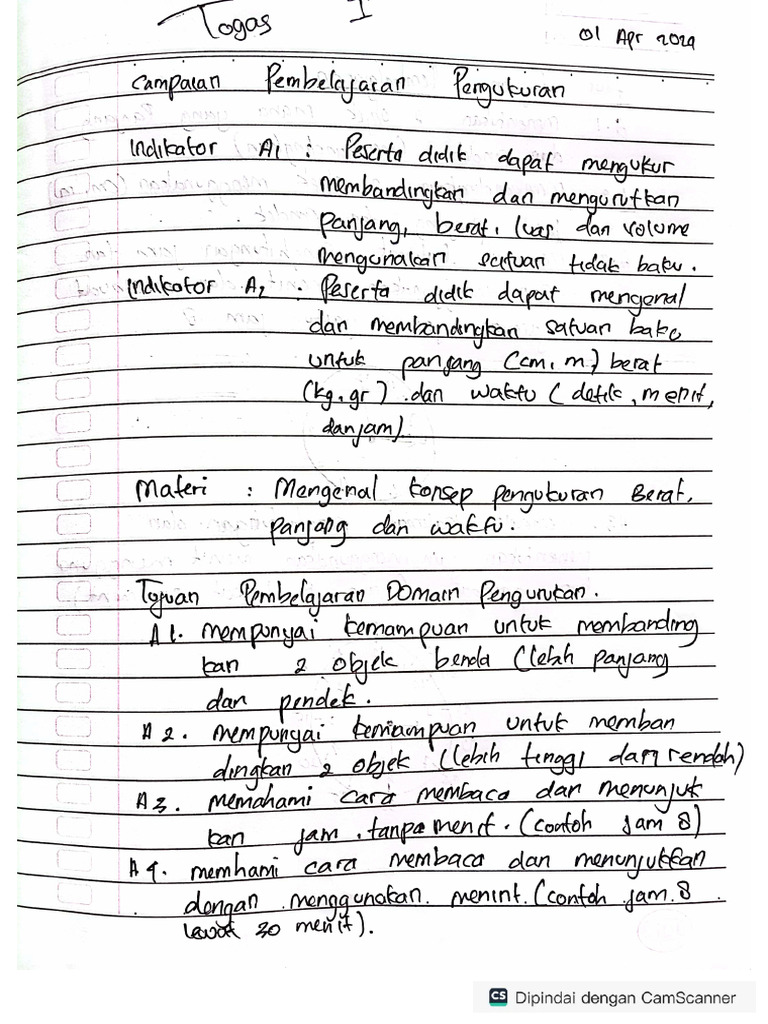 Togas I
01 Apr 2024
Campaian Pembelajaran Pengukuran
Indikator A1 : Peserta didik dapat mengukur
membandingkan dan mengurutkan
panjang, berat, luas dan volume
mengunakan satuan tidak baku.
Indikator A2 : Peserta didik dapat mengenal
dan membandingkan satuan baku
untuk panjang (cm, m) berat
(kg, gr) . dan waktu (detik, menit,
dan jam).
Materi : Mengenal konsep pengukuran Berat,
panjang dan waktu.
Tujuan Pembelajaran Domain Pengurukan.
A1. mempunyai kemampuan untuk membanding
kan 2 objek benda (lebih panjang
dan pendek.
A2. mempunyai kemampuan untuk memban
dingkan 2 objek (lebih tinggi dan rendah)
A3. memahami cara membaca dan menunjuk
kan jam . tanpa menit . (contoh jam 8)
A4. memhami cara membaca dan menunjukkan
dengan . menggunakan . menint. (contoh . jam . 8 .
30 menit).
CS Dipindai dengan CamScanner